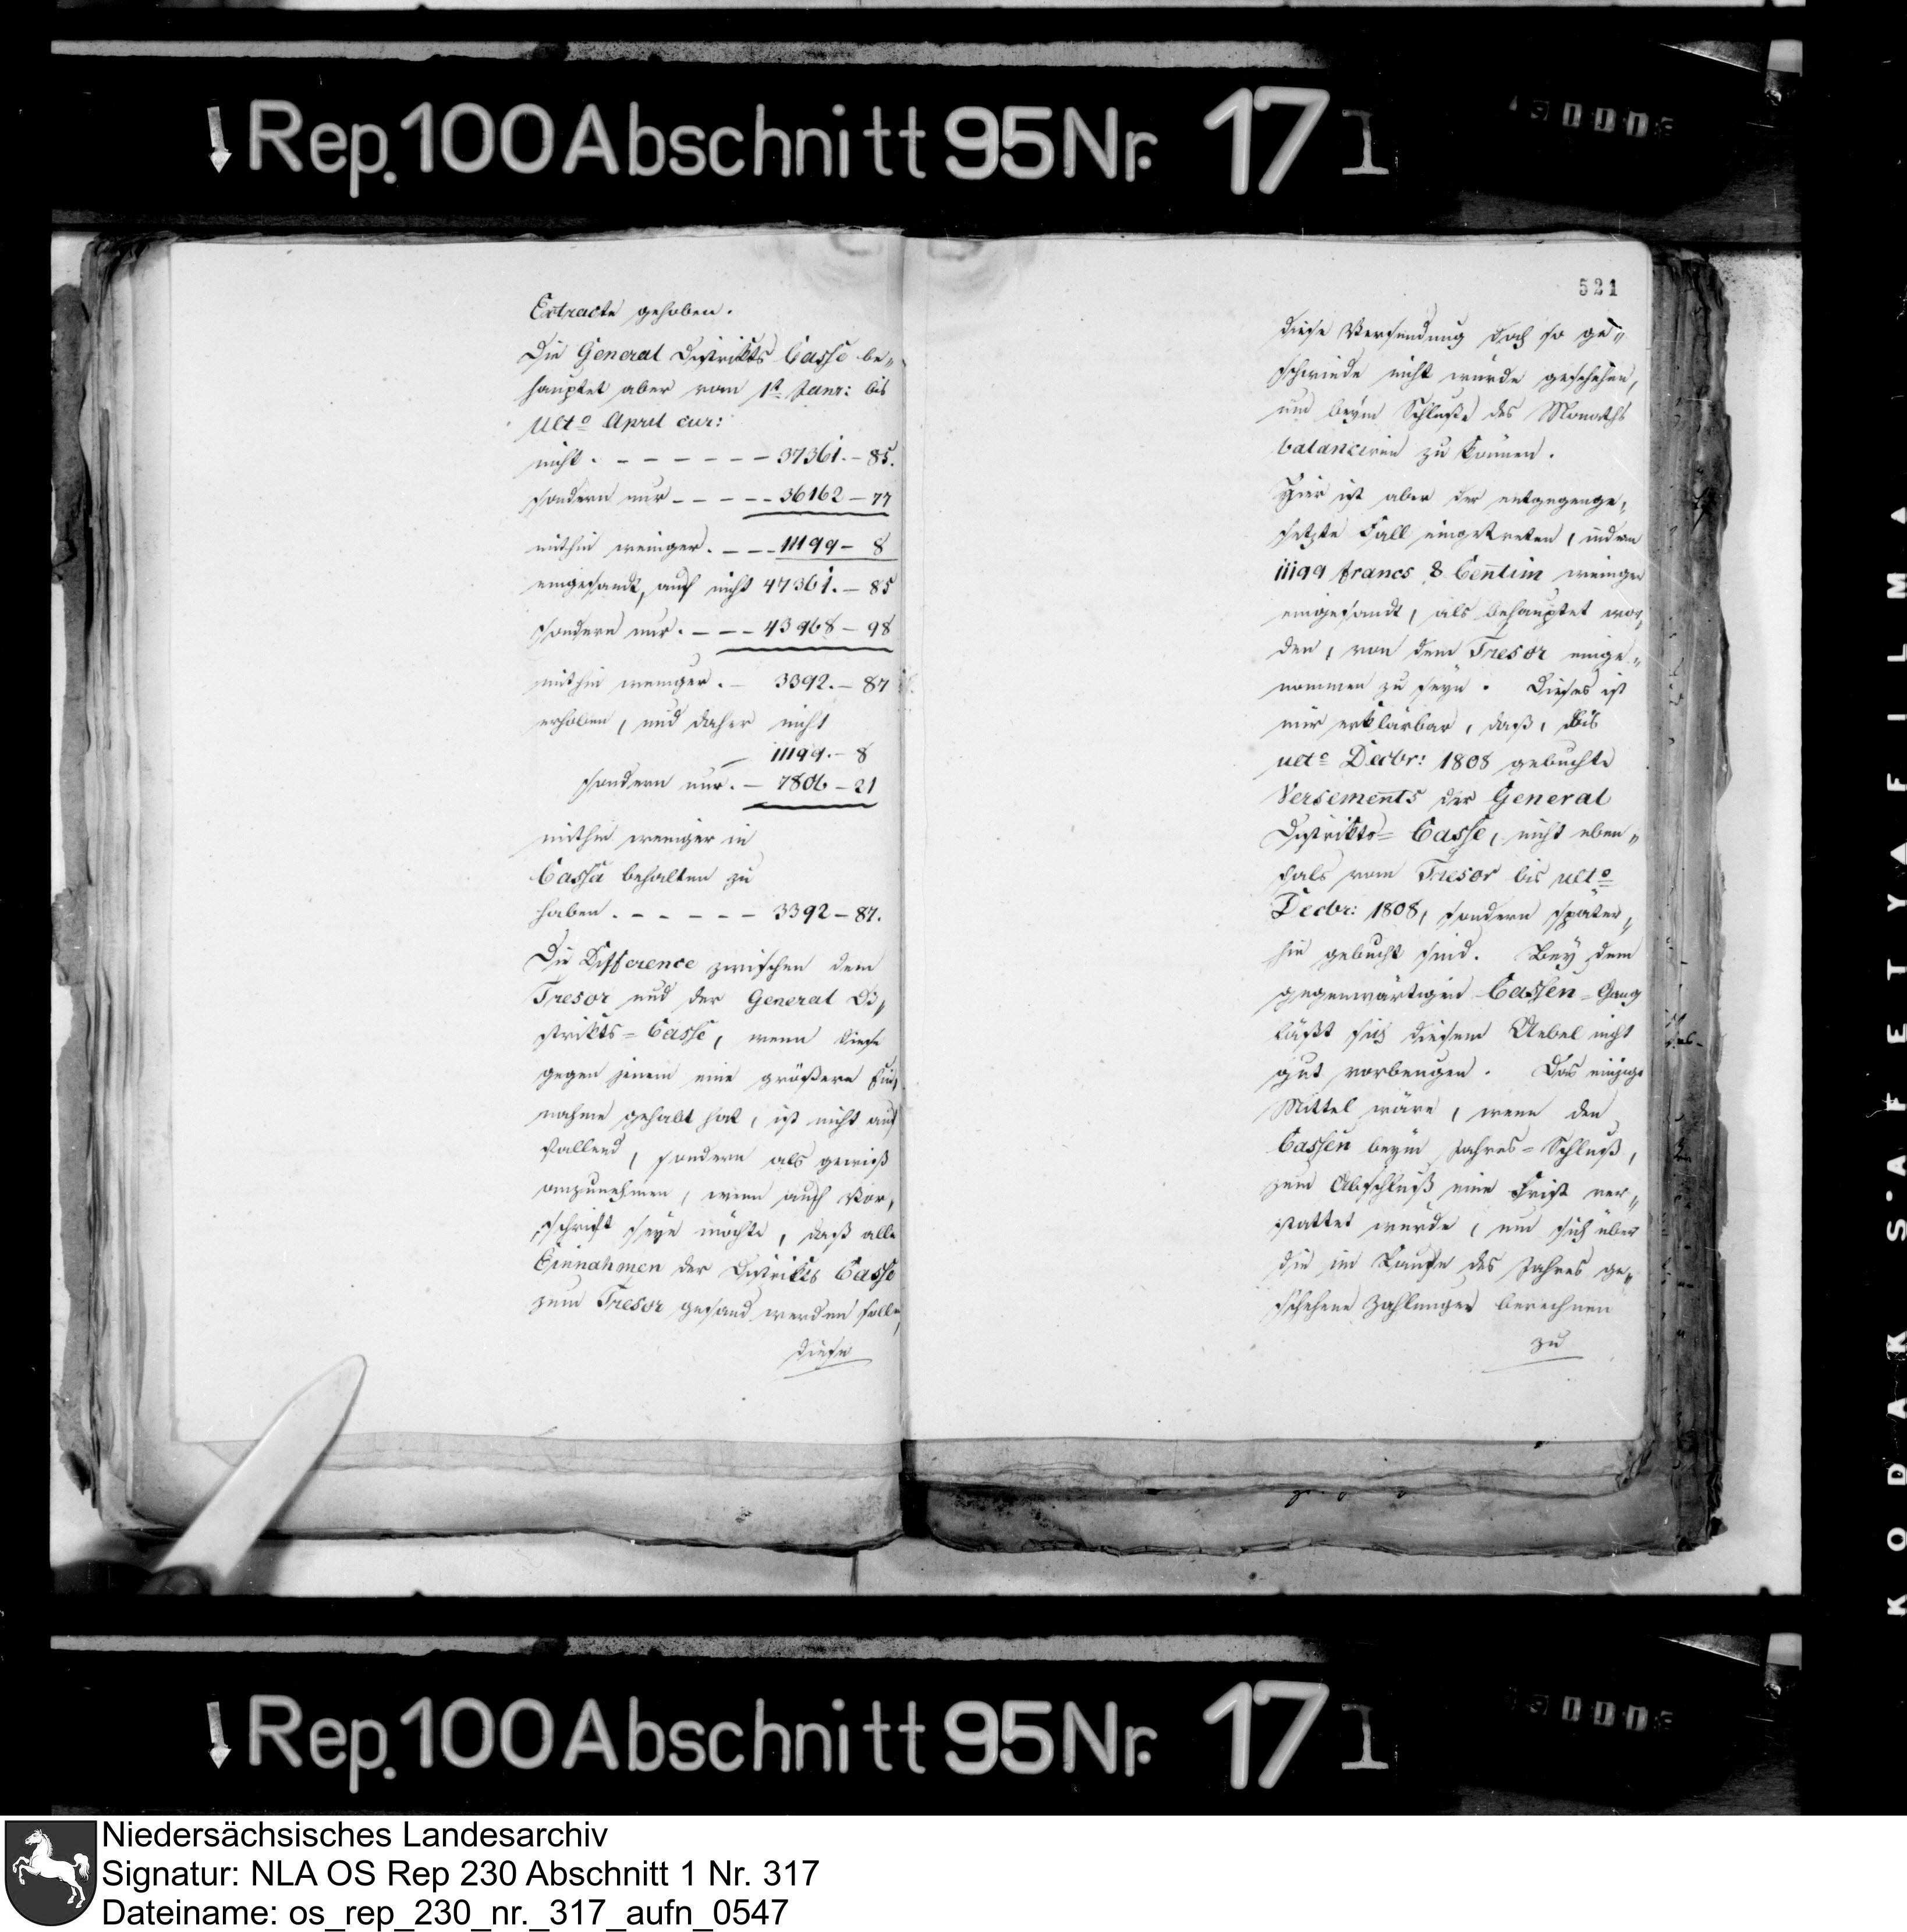 Rep. 100 Abschnitt 95 Nr. 17 1
Extracte gehoben.
Die General Distrikts Casse be„
hauptet aber vom 1t. Janr: bis
Ulto April cur:
nicht. – – – – – – – 37361. – 85.
sondern nur – – – – – 36162 – 77
mithin weniger. – – – 11199 – 8
eingesandt, auch nicht 47361. – 85
sondern nur. – – – 43968 – 98
mithin weniger. – 3392. – 87
erhoben, und daher nicht
– 11199. – 8
sondern nur. – 7806 – 21
mithin weniger in
Cassa behalten zu
haben. – – – – – – 3392 – 87.
Die Difference zwischen dem
Tresor und der General Di„
strikts = Casse, wenn diese
gegen jenem eine größere Ein„
nahme gehabt hat, ist nicht auf
fallend, sondern als gewiß
anzunehmen, wenn auch Vor„
schrift seyn möchte, daß alle
Einnahmen der Distrikts Casse
zum Tresor gesand werden solle,
diese
521
diese Versendung doch so ge„
schwinde nicht würde geschehen,
um beym Schluße des Monaths
balanciren zu können.
Hier ist aber der entgegenge„
setzte Fall eingetreten, indem
11199 francs 8 Centim weniger
eingesandt, als behauptet wor„
den, von dem Tresor einge„
nommen zu seyn. Dieses ist
nur erklärbar, daß, bis
ulto Decbr: 1808 gebuchte
Versements der General
Distrikts = Casse, nicht eben„
fals vom Tresor bis ulto
Decbr: 1808, sondern später„
hin gebucht sind. Bey dem
gegenwärtigen Cassen = Gang
läßt sich diesem Uebel nicht
gut vorbeugen. Das einzige
Mittel wäre, wenn den
Cassen beym Jahres = Schluß,
zum Abschluß eine Frist ver„
stattet wurde, um sich über
die im Laufe des Jahres ge„
schehene Zahlungen berechnen
zu
KODAK SAFETY FILM
Rep. 100 Abschnitt 95 Nr. 17 1
Niedersächsisches Landesarchiv
Signatur: NLA OS Rep 230 Abschnitt 1 Nr. 317
Dateiname: os_rep_230_nr._317_aufn_0547